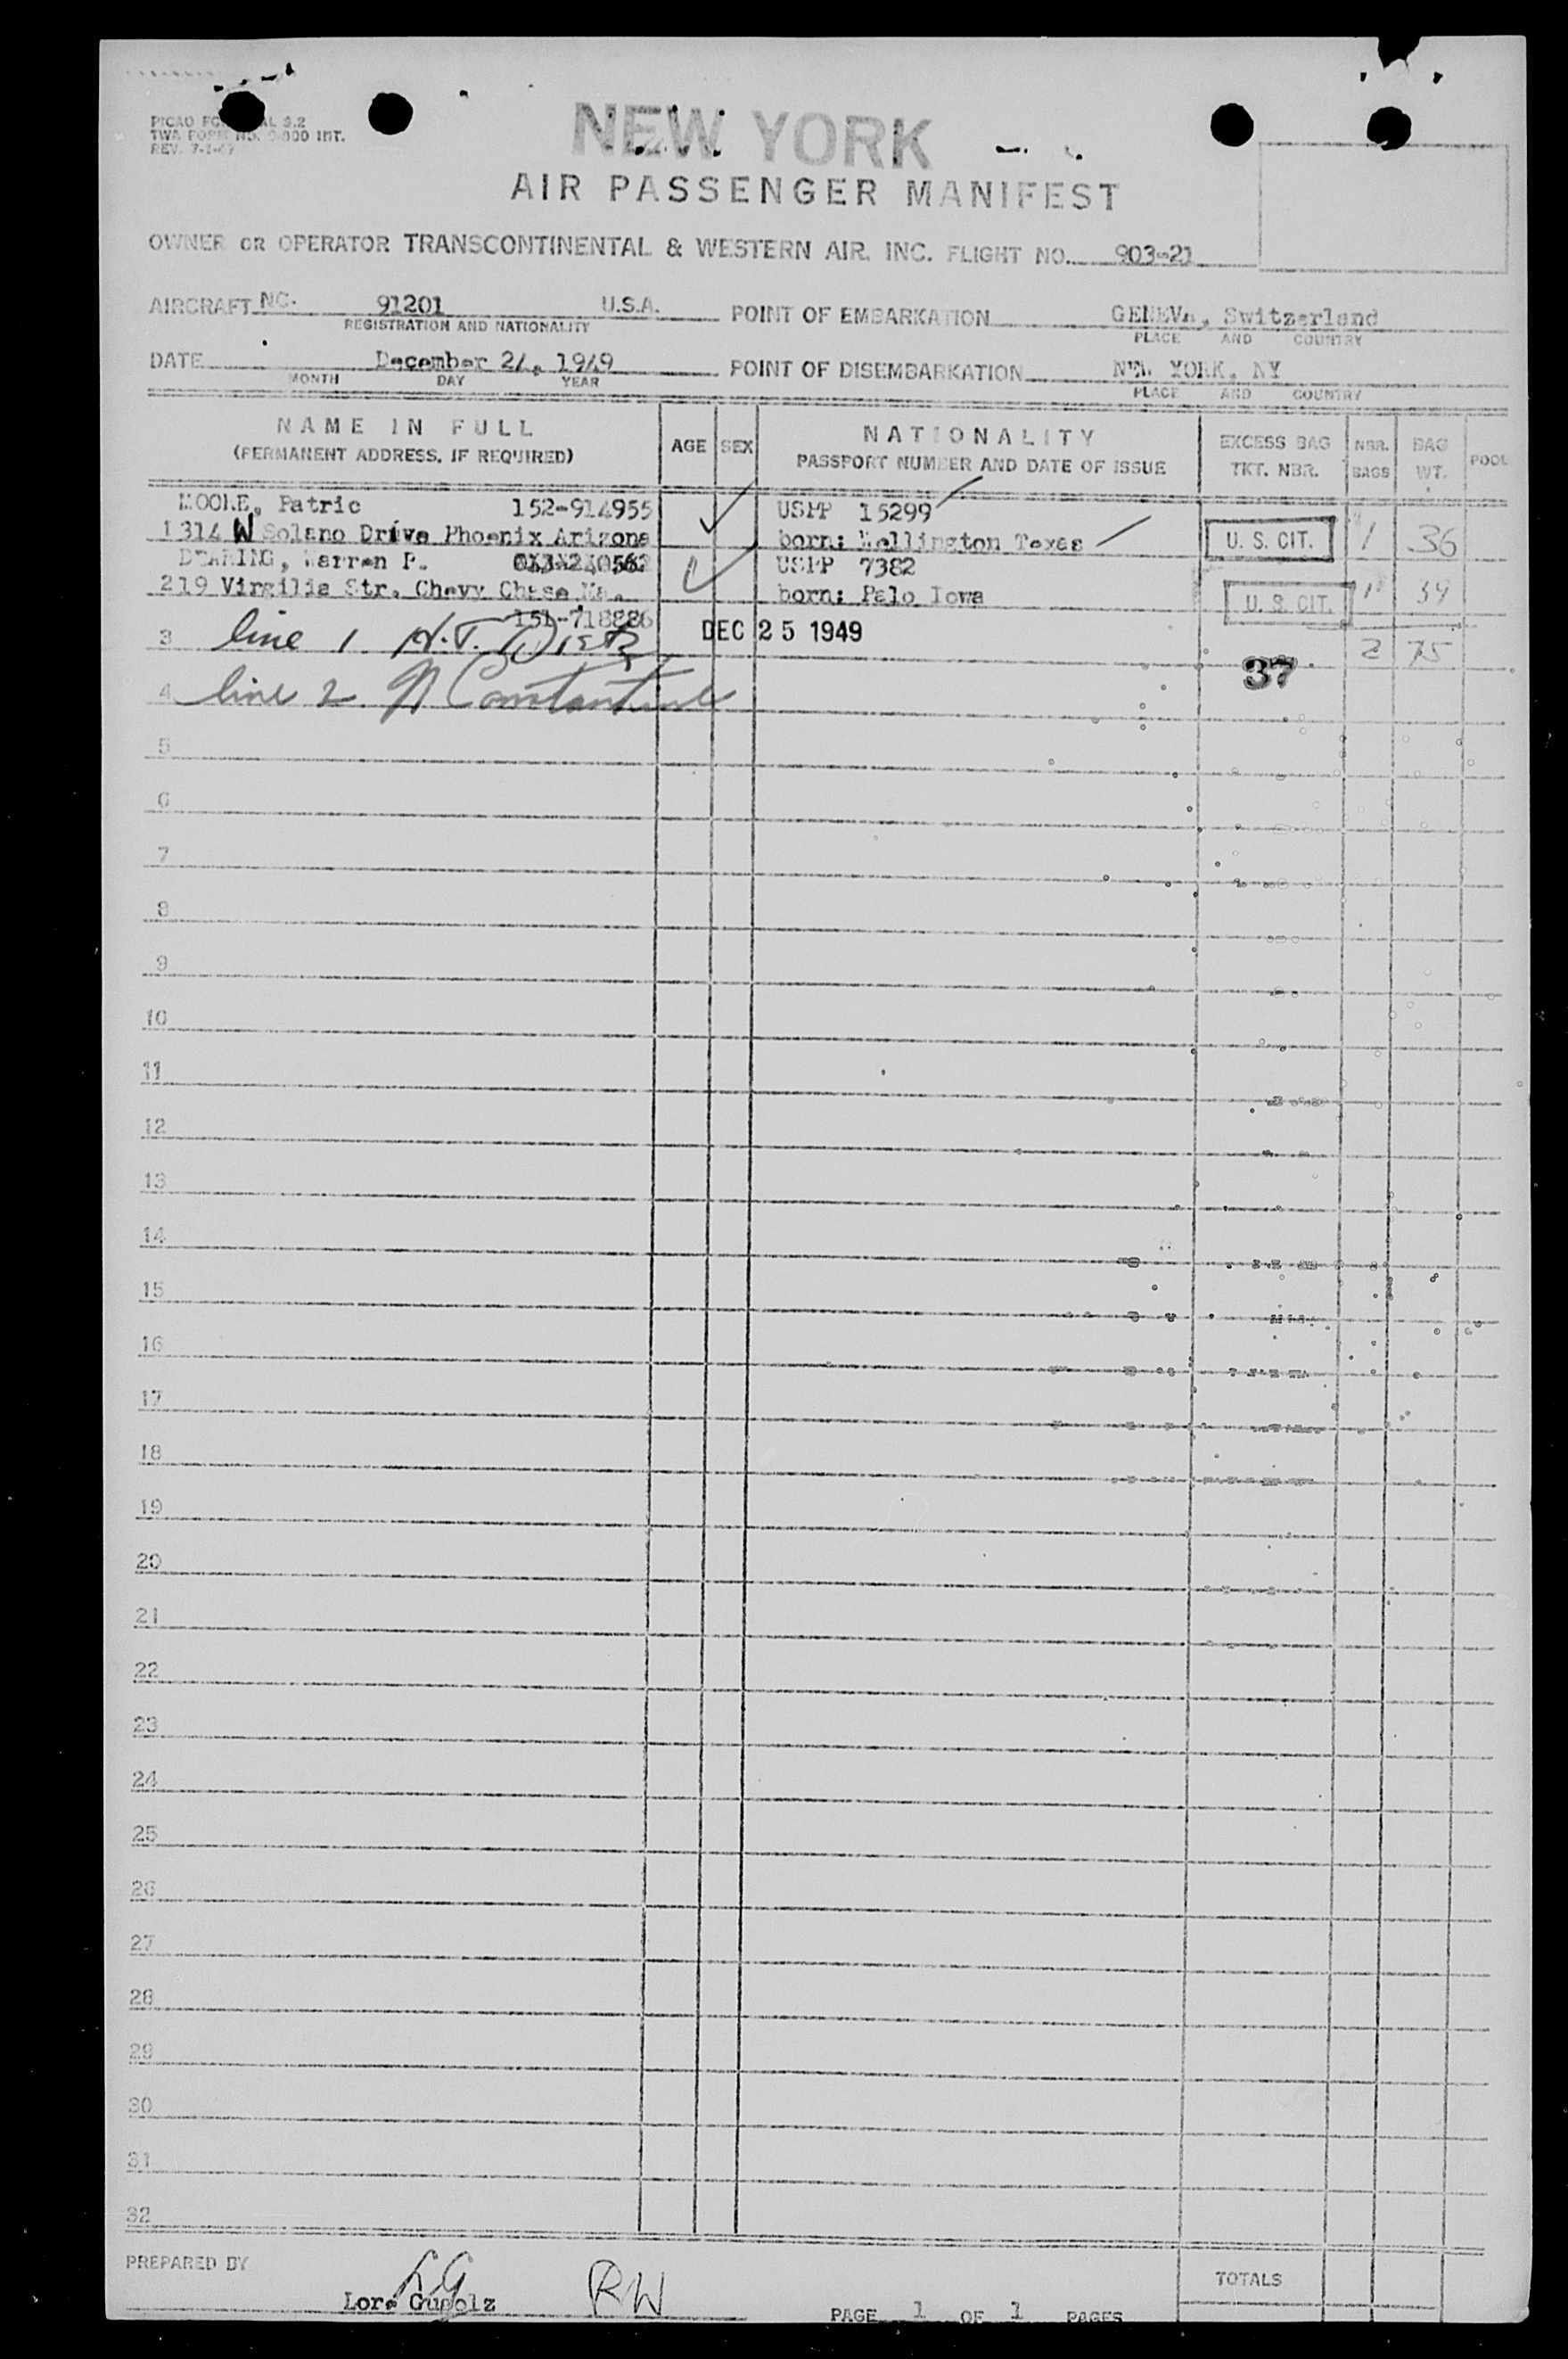 NEW YORK
PICAO
TWA FORM NO. INT.
REV. 7-1-47
AIR PASSENGER MANIFEST
OWNER OR OPERATOR TRANSCONTINENTAL & WESTERN AIR. INC. FLIGHT NO. 903-21
AIRCRAFT NC. 91201 U.S.A. POINT OF EMBARKATION GENEVA, Switzerland
REGISTRATION AND NATIONALITY PLACE AND COUNTRY
DATE December 24, 1949 POINT OF DISEMBARKATION NEW YORK, NY
MONTH DAY YEAR PLACE AND COUNTRY
NAME IN FULL (PERMANENT ADDRESS, IF REQUIRED) AGE SEX NATIONALITY PASSPORT NUMBER AND DATE OF ISSUE EXCESS BAG TKT. NBR. NBR. BAGS BAG WT. POOL
MOORE, Patric 152-914955 USPP 15299
1314 W Solano Drive Phoenix Arizona born: Wellington Texas U. S. CIT. 1 36
DEARING, Warren P. USPP 7382
219 Virgilia Str. Chevy Chase born: Palo Iowa U. S. CIT. 1 39
151-718886
3 line 1 H.T. Dietz DEC 25 1949 2 75
37
4 line 2. N Constantine
5
6
7
8
9
10
11
12
13
14
15
16
17
18
19
20
21
22
23
24
25
26
27
28
29
30
31
32
PREPARED BY LG RW TOTALS
Lore
PAGE 1 OF 1 PAGES